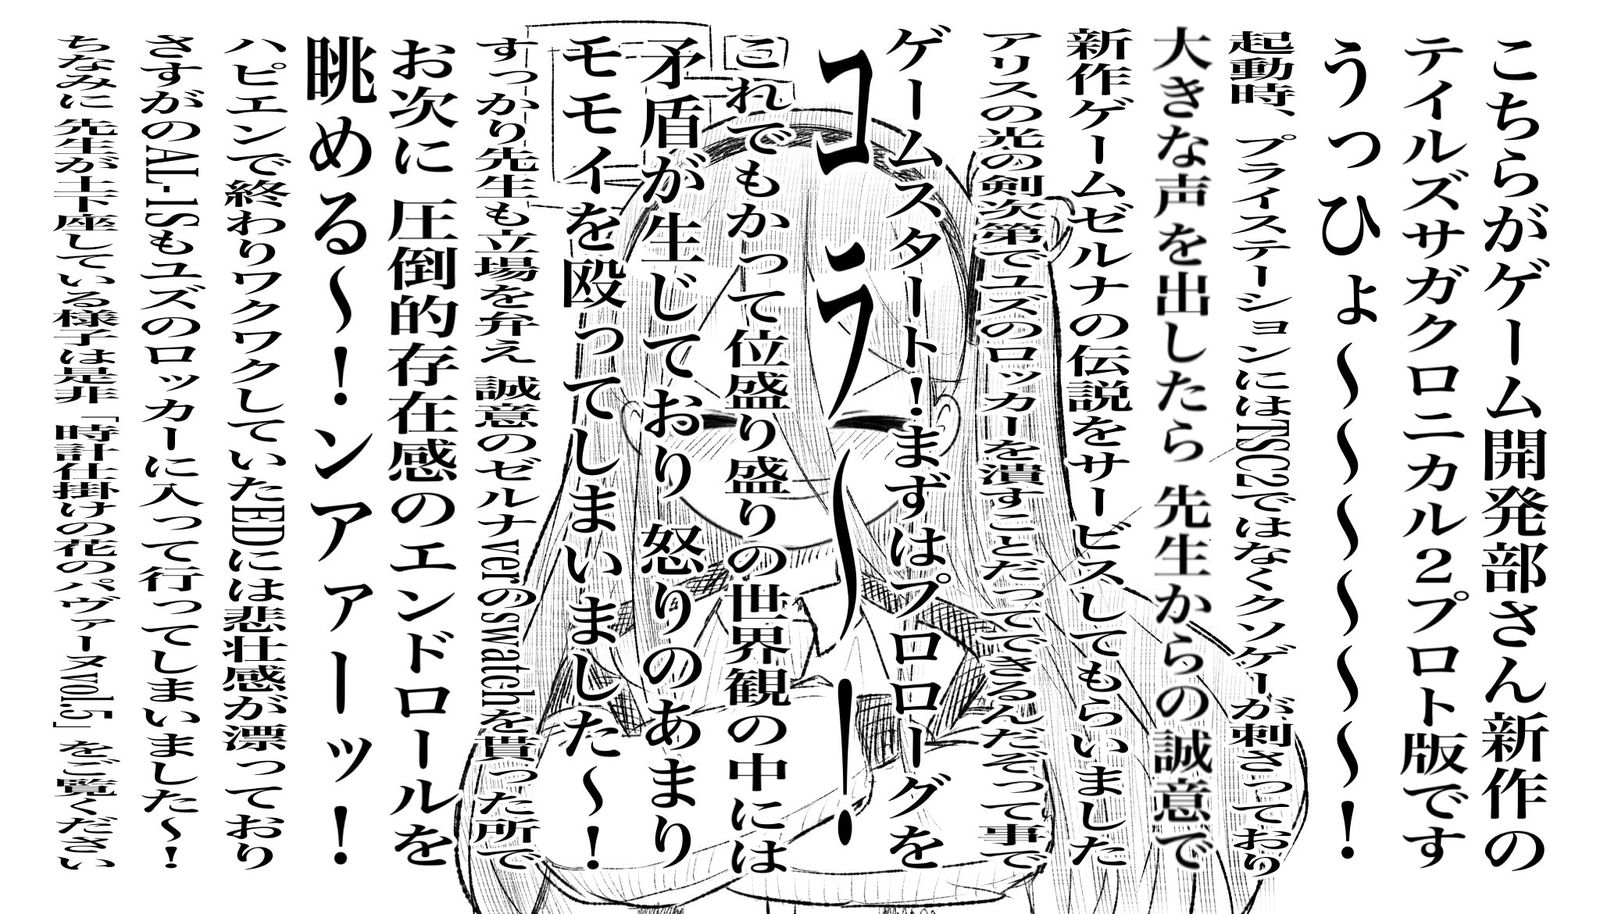 こちらがゲーム開発部さん新作の
テイルズサガクロニカル２プロト版です
うっひょ〜〜〜〜〜〜！
起動時、プライステーションにはTSC2ではなくクソゲーが刺さっており
大きな声を出したら 先生からの誠意で
新作ゲームゼルナの伝説をサービスしてもらいました
アリスの光の剣次第でユズのロッカーを潰すことだってできるんだぞって事で
ゲームスタート！まずはプロローグを
コラ〜！
これでもかって位盛り盛りの世界観の中には
矛盾が生じており 怒りのあまり
モモイを殴ってしまいました〜！
すっかり先生も立場を弁え 誠意のゼルナverのswatchを貰った所で
お次に 圧倒的存在感のエンドロールを
眺める〜！ンアァーッ！
ハピエンで終わりワクワクしていたEDには悲壮感が漂っており
さすがのAL-1Sもユズのロッカーに入って行ってしまいました〜！
ちなみに 先生が土下座している様子は是非「時計仕掛けの花のパヴァーヌvol.5」をご覧ください